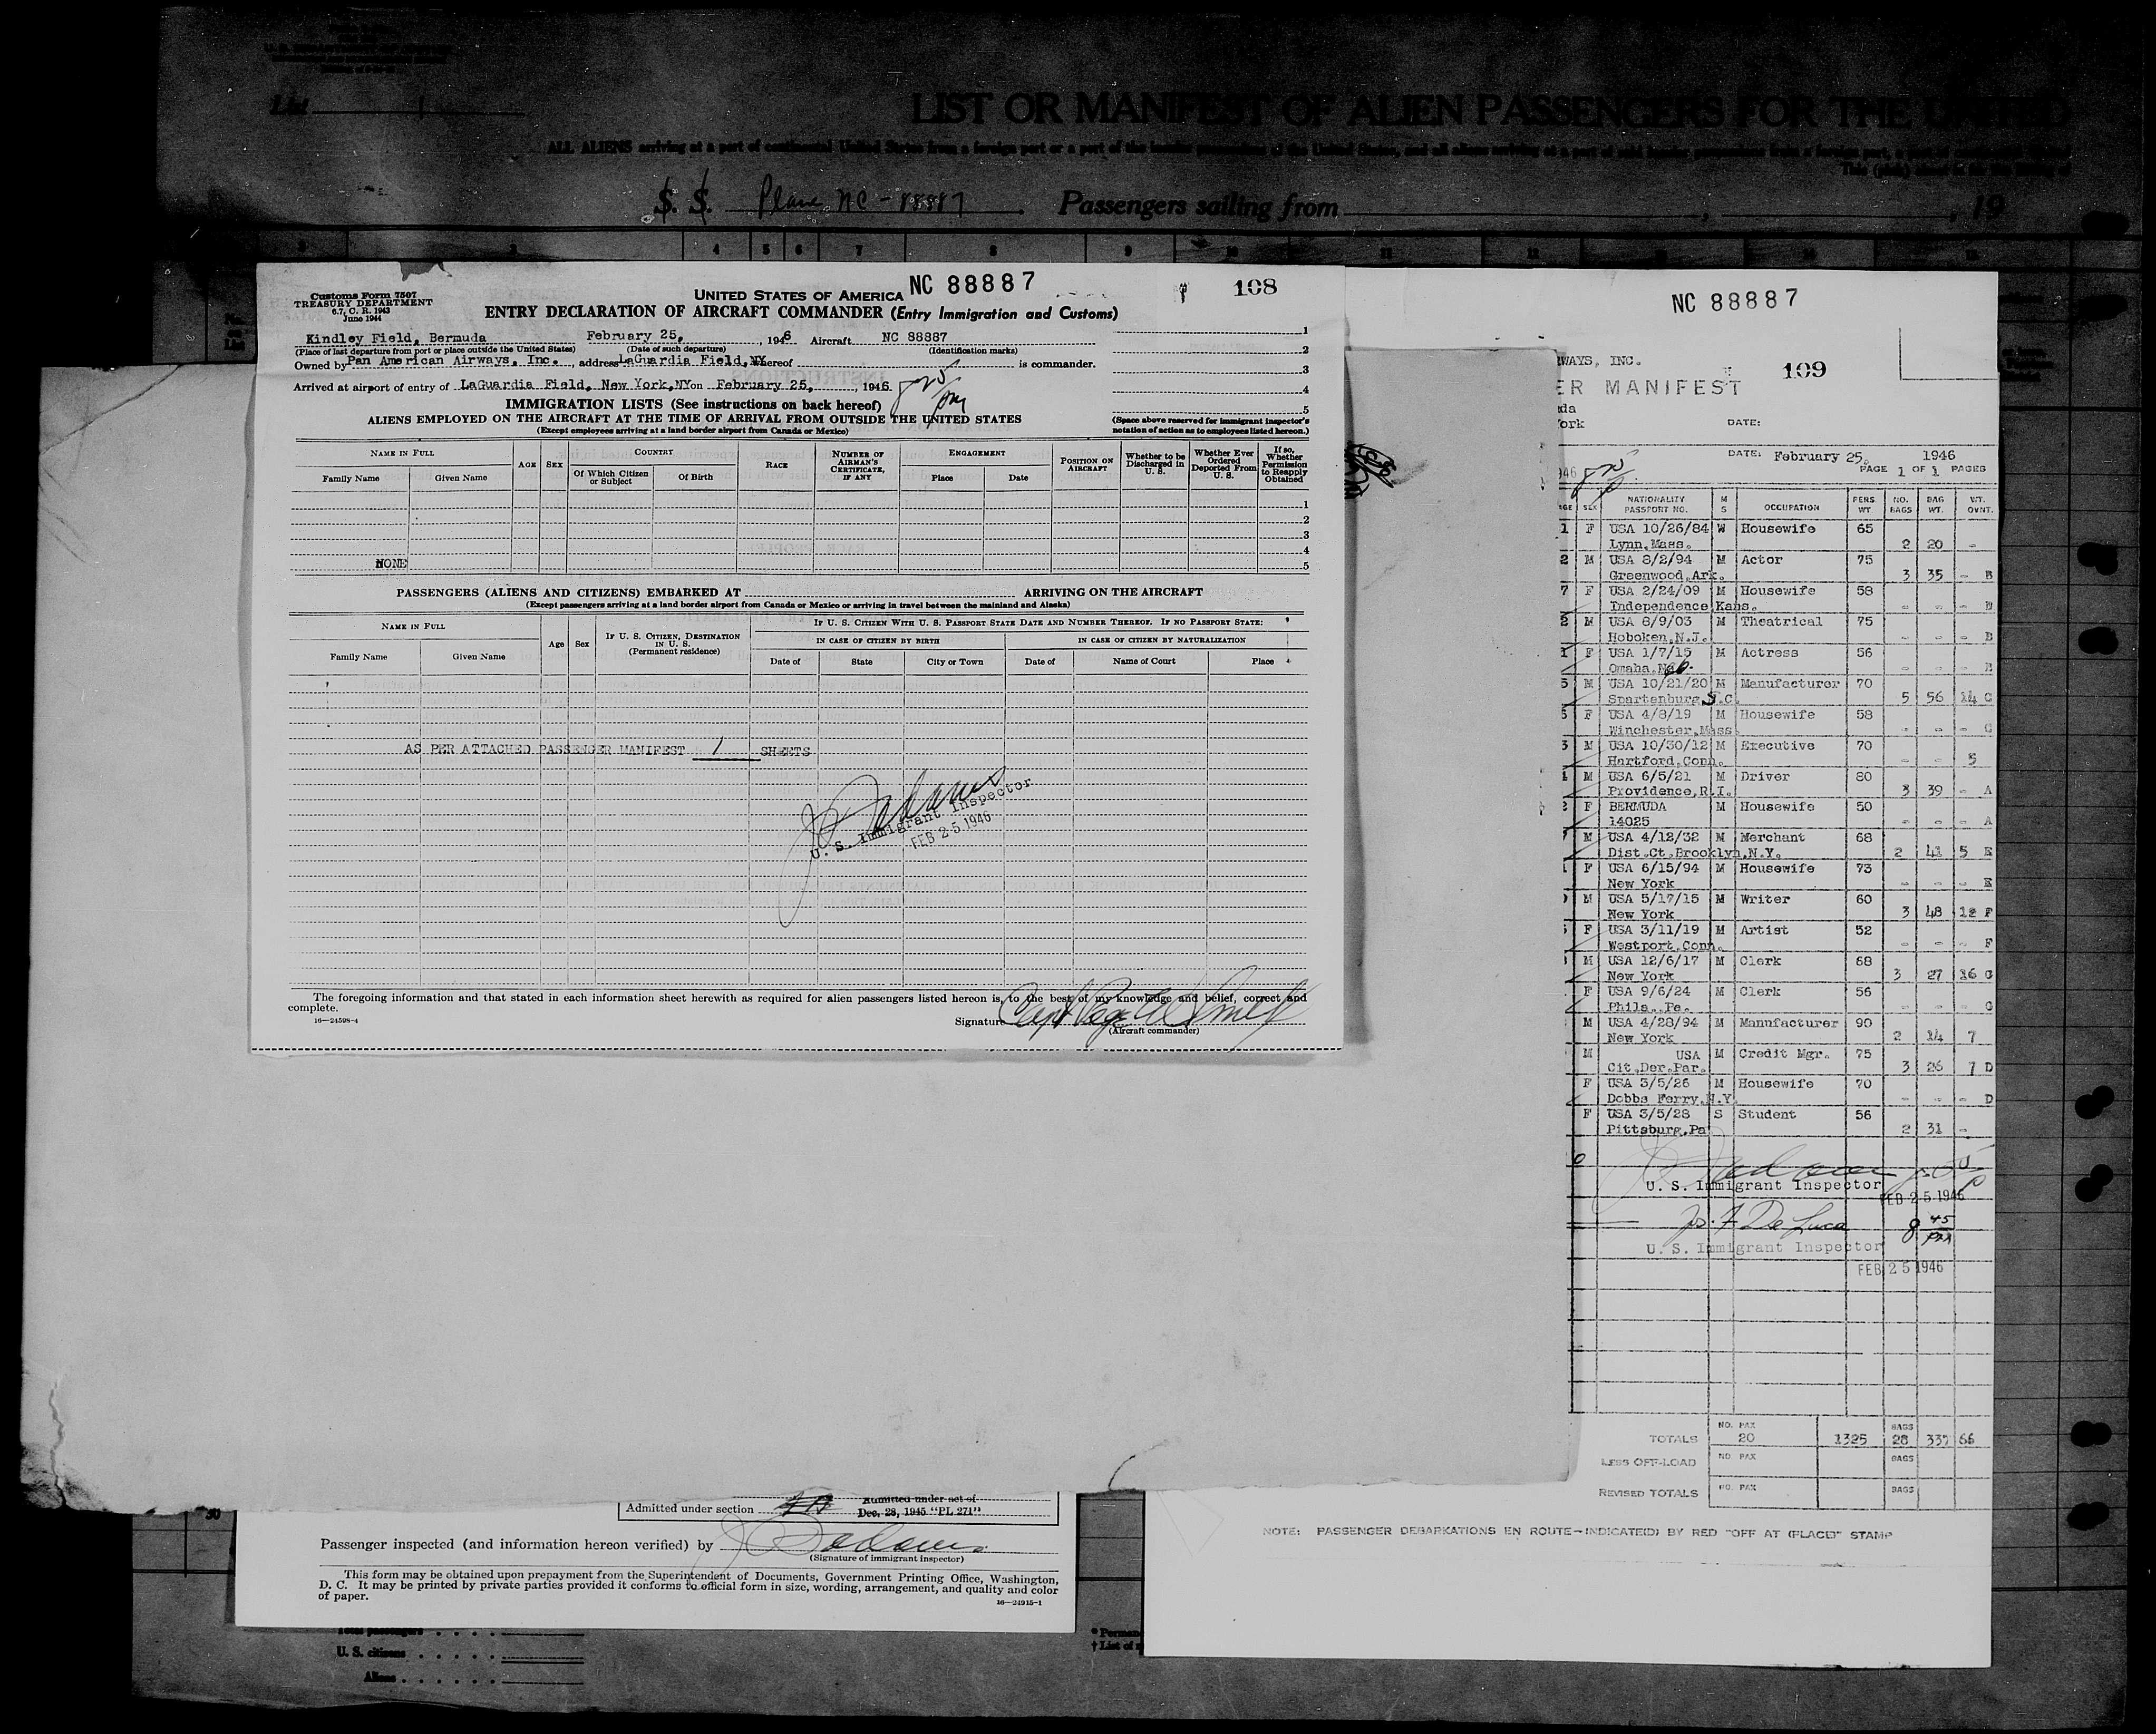 List 1
LIST OR MANIFEST OF ALIEN PASSENGERS FOR THE UNITED
ALL ALIENS arriving at a port of continental United States from a foreign port or a port of the insular possessions of the United States, and all aliens arriving at a port of said insular possessions from a foreign port, a port of
S. S. Plane NC-88887 Passengers sailing from , , 19
3 4 5 6 7 8 9 10 11 12
Customs Form 7507
TREASURY DEPARTMENT
6.7, C. R. 1943
June 1944
UNITED STATES OF AMERICA NC 88887
108
ENTRY DECLARATION OF AIRCRAFT COMMANDER (Entry Immigration and Customs)
Kindley Field, Bermuda February 25, 1946 Aircraft NC 88887
(Place of last departure from port or place outside the United States) (Date of such departure) (Identification marks)
Owned by Pan American Airways, Inc. , address LaGuardia Field, NY whereof is commander.
Arrived at airport of entry of LaGuardia Field, New York, NY on February 25, , 1946. 825 PM
1
2
3
4
5
IMMIGRATION LISTS (See instructions on back hereof)
ALIENS EMPLOYED ON THE AIRCRAFT AT THE TIME OF ARRIVAL FROM OUTSIDE THE UNITED STATES
(Except employees arriving at a land border airport from Canada or Mexico)
(Space above reserved for immigrant inspector's
notation of action as to employees listed hereon.)
NAME IN FULL
Family Name Given Name
AGE SEX
COUNTRY
Of Which Citizen or Subject Of Birth
RACE
NUMBER OF AIRMAN'S CERTIFICATE, IF ANY
ENGAGEMENT
Place Date
POSITION ON AIRCRAFT
Whether to be Discharged in U. S.
Whether Ever Ordered Deported From U. S.
If so, Whether Permission to Reapply Obtained
1
2
3
4
NONE 5
PASSENGERS (ALIENS AND CITIZENS) EMBARKED AT ARRIVING ON THE AIRCRAFT
(Except passengers arriving at a land border airport from Canada or Mexico or arriving in travel between the mainland and Alaska)
NAME IN FULL
Family Name Given Name
Age Sex
IF U. S. CITIZEN, DESTINATION IN U. S.
(Permanent residence)
IF U. S. CITIZEN WITH U. S. PASSPORT STATE DATE AND NUMBER THEREOF. IF NO PASSPORT STATE:
IN CASE OF CITIZEN BY BIRTH IN CASE OF CITIZEN BY NATURALIZATION
Date of State City or Town Date of Name of Court Place
AS PER ATTACHED PASSENGER MANIFEST 1 SHEETS
U. S. Immigrant Inspector
FEB 25 1946
The foregoing information and that stated in each information sheet herewith as required for alien passengers listed hereon is, to the best of my knowledge and belief, correct and
complete.
16—24598-4
Signature Capt
(Aircraft commander)
NC 88887
WAYS, INC.
109
ER MANIFEST
da
ork
DATE:
DATE: February 25, 1946
PAGE 1 OF 1 PAGES
946
AGE SEX NATIONALITY PASSPORT NO. M S OCCUPATION PERS WT. NO. BAGS BAG WT. WT. OVNT.
1 F USA 10/26/84 W Housewife 65
Lynn, Mass. 2 20 -
2 M USA 8/2/94 M Actor 75
Greenwood, Ark. 3 35 - B
7 F USA 2/24/09 M Housewife 58
Independence Kans. - - B
2 M USA 8/9/03 M Theatrical 75
Hoboken, N.J. - - - B
1 F USA 1/7/15 M Actress 56
Omaha, Neb. - - - B
5 M USA 10/21/20 M Manufacturer 70
Spartenburg S.C. 5 56 14 C
5 F USA 4/8/19 M Housewife 58
Winchester, Mass. - - - C
3 M USA 10/30/12 M Executive 70
Hartford, Conn. - - 5
M USA 6/5/21 M Driver 80
Providence, R.I. 3 39 - A
2 F BERMUDA M Housewife 50
14025 - - - A
7 M USA 4/12/32 M Merchant 68
Dist. Ct. Brooklyn, N.Y. 2 41 5 E
F USA 6/15/94 M Housewife 73
New York - - - E
M USA 5/17/15 M Writer 60
New York 3 48 12 F
F USA 3/11/19 M Artist 52
Westport, Conn. - - - F
M USA 12/6/17 M Clerk 68
New York 3 27 16 G
F USA 9/6/24 M Clerk 56
Phila. Pa. - - - G
M USA 4/28/94 M Manufacturer 90
New York 2 14 7
M USA M Credit Mgr. 75
Cit. Der. Par. 3 26 7 D
F USA 3/5/26 M Housewife 70
Dobbs Ferry, N.Y. - - - D
F USA 3/5/28 S Student 56
Pittsburg, Pa 2 31 -
U. S. Immigrant Inspector
FEB 25 1946
Jos. F. De Luca 8 45 PM
U. S. Immigrant Inspector
FEB 25 1946
TOTALS NO. PAX 20 1325 BAGS 28 337 66
LESS OFF-LOAD NO. PAX BAGS
REVISED TOTALS NO. PAX BAGS
NOTE: PASSENGER DEBARKATIONS EN ROUTE—INDICATE(D) BY RED "OFF AT (PLACE)" STAMP
30
Admitted under section Admitted under act of
Dec. 28, 1945 "PL 271"
Passenger inspected (and information hereon verified) by
(Signature of immigrant inspector)
This form may be obtained upon prepayment from the Superintendent of Documents, Government Printing Office, Washington,
D. C. It may be printed by private parties provided it conforms to official form in size, wording, arrangement, and quality and color
of paper.
16—24915-1
Total passengers
U. S. citizens
Aliens
* Perman
† List of